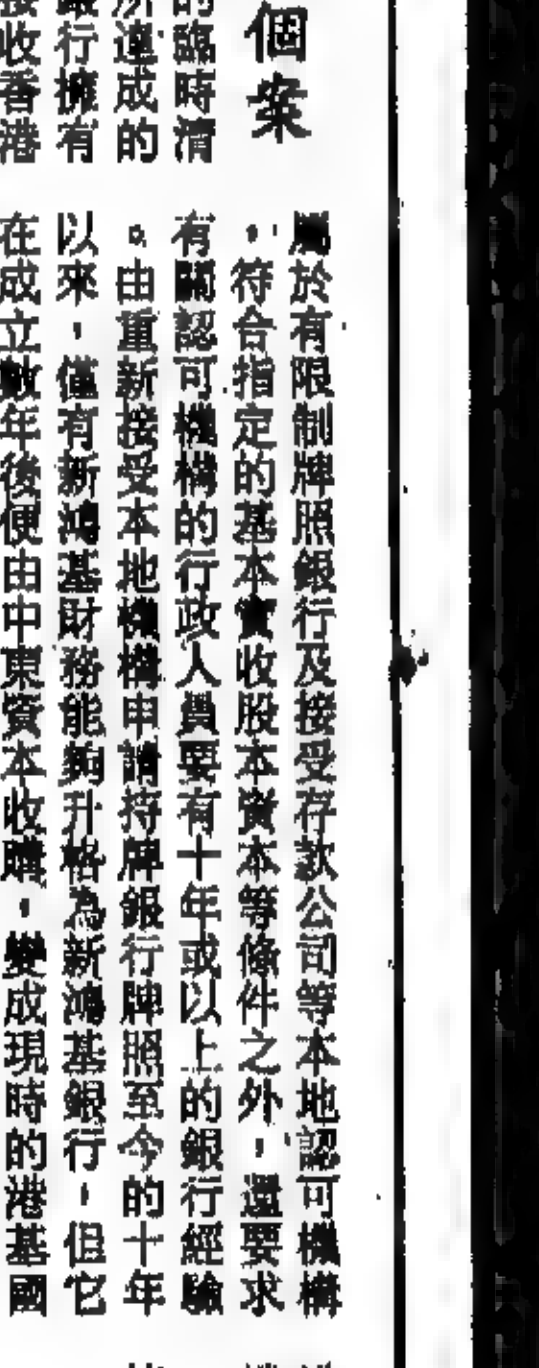 個案
的臨時清
所達成的
銀行擁有
接收香港
屬於有限制牌照銀行及接受存款公司等本地認可機構
，符合指定的基本實收股本資本等條件之外，還要求
有關認可機構的行政人員要有十年或以上的銀行經驗
。由重新接受本地機構申請持牌銀行牌照至今的十年
以來，僅有新鴻基財務能夠升格為新鴻基銀行，但它
在成立數年後便由中東資本收購，變成現時的港基國